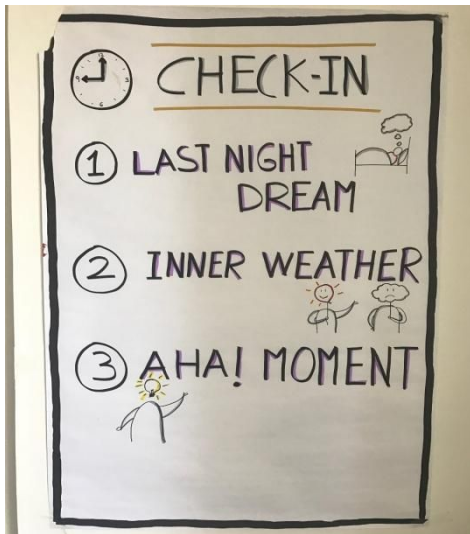 CHECK-IN
1 LAST NIGHT
DREAM
2 INNER WEATHER
3 AHA! MOMENT